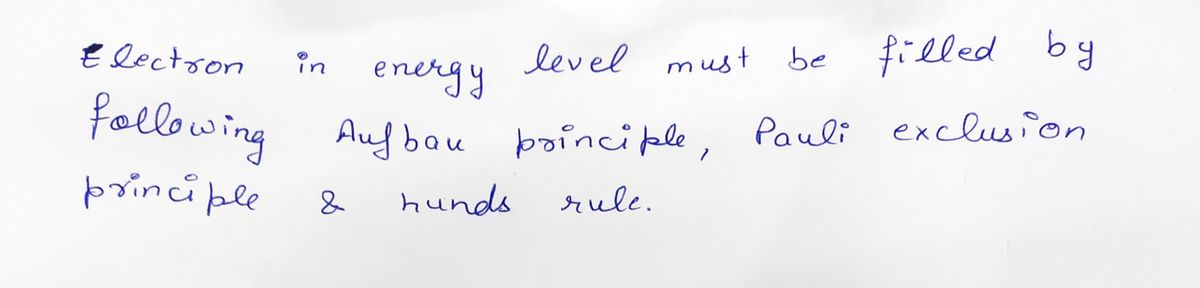 Electron in energy level must be filled by
following Aufbau principle, Pauli exclusion
principle & hunds rule.